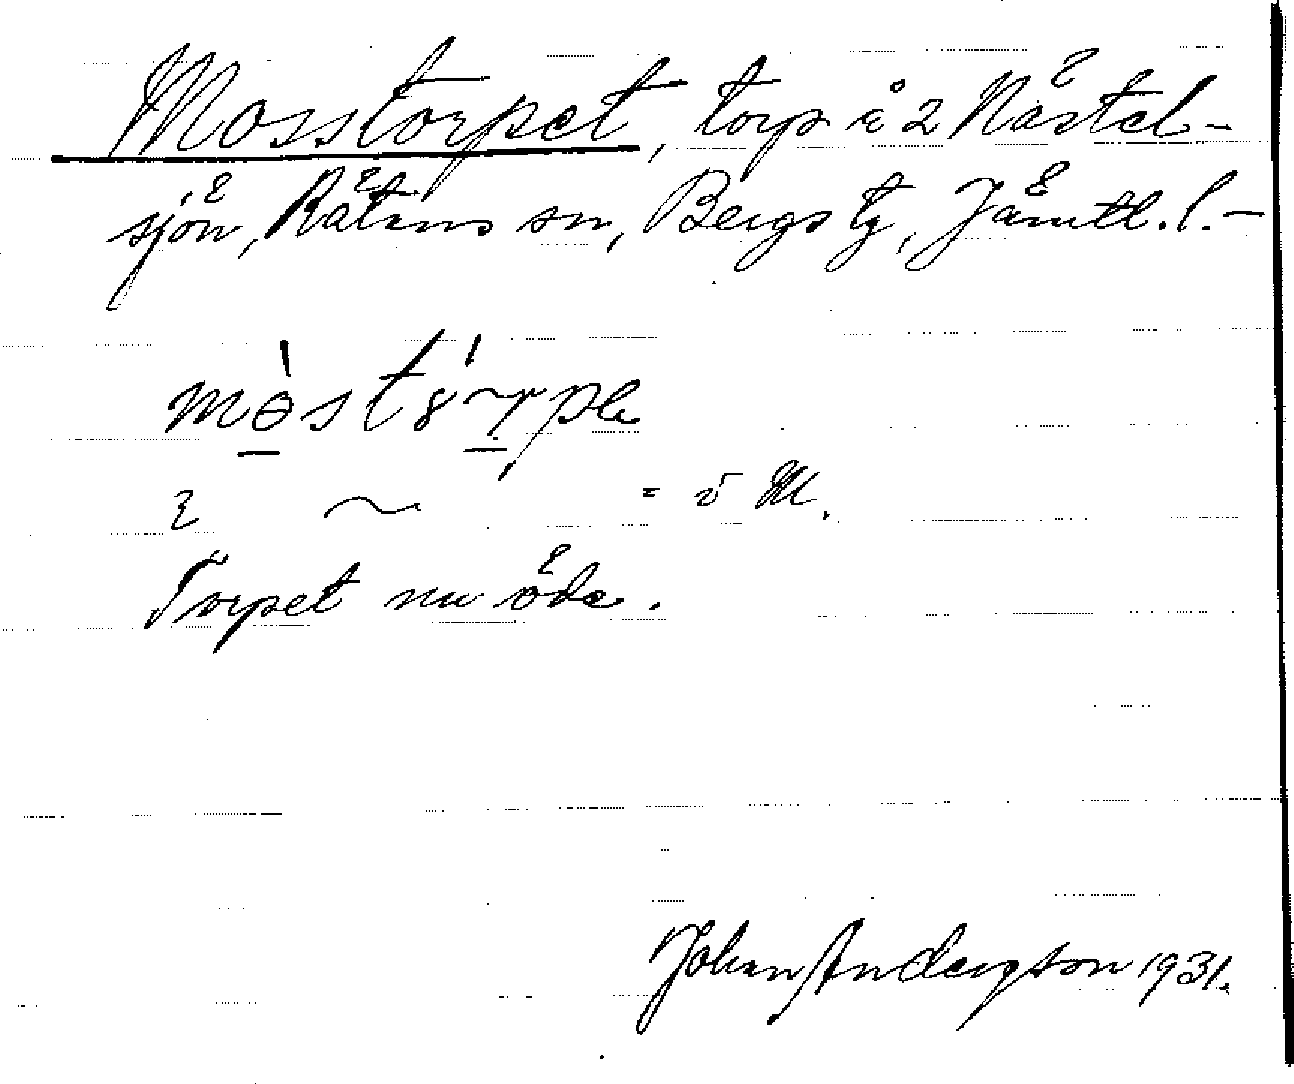 Mosstorpet, torp i 2 Nästel-
sjön, Rätans sn, Bergs tg, Jämtl. l. -
Torpet nu öde.
Johan Anderson 1931.